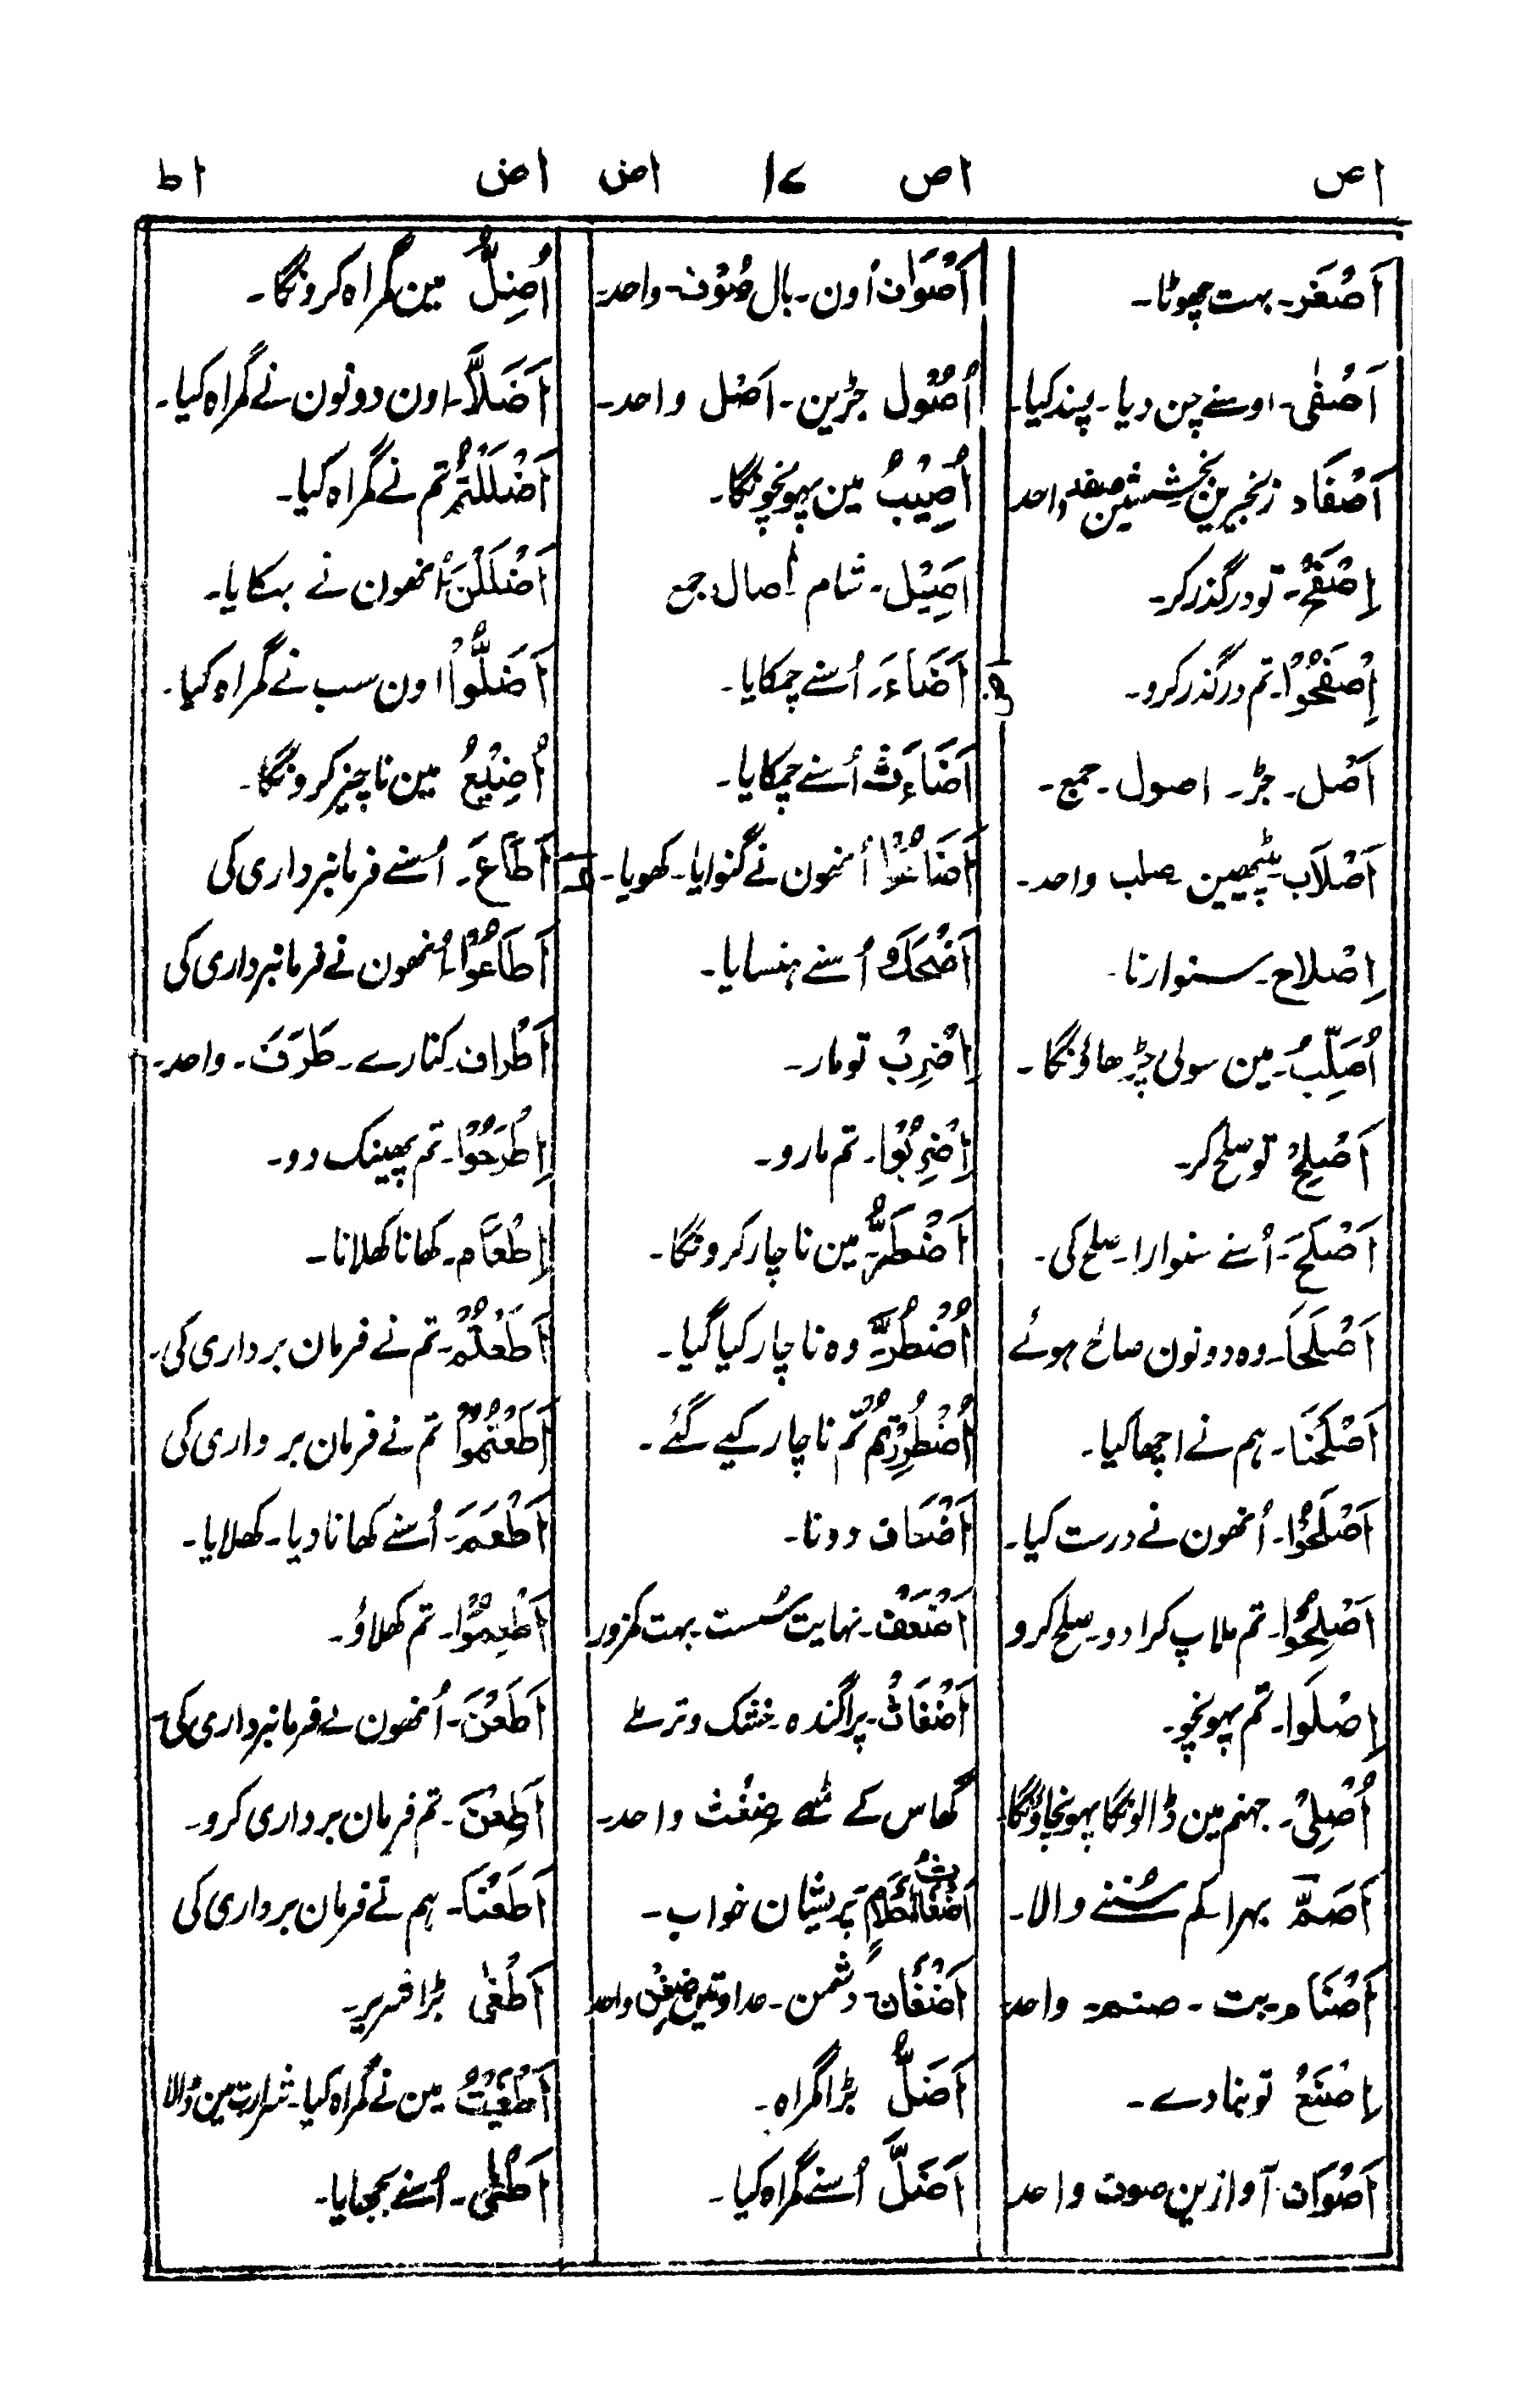 اص اص ۱۷ اض اض اط
اَصْغَر۔ بہت چھوٹا۔
اَصْفٰی۔ اوسنے چن دیا۔ پسند کیا۔
اَصْفَاد زنجیرین بخششین صفد واحد
اِصْفَحْ۔ تو درگذر کر۔
اِصْفَحُوْا۔ تم درگذر کرو۔
اَصْل۔ جڑ۔ اصول۔ جمع۔
اَصْلَاب۔ پٹھیین صلب واحد۔
اِصْلَاح۔ سنوارنا۔
اُصَلِّبُ۔ مین سولی چڑھاؤنگا۔
اَصْلِحْ تو صلح کر۔
اَصْلَحَ۔ اُسنے سنوارا۔ صلح کی۔
اَصْلَحَا۔ وہ دونون صالح ہوئے
اَصْلَحْنَا۔ ہم نے اچھا کیا۔
اَصْلَحُوْا۔ اُنھون نے درست کیا۔
اَصْلِحُوْا۔ تم ملاپ کرا دو۔ صلح کرو
اِصْلَوا۔ تم پہونچو۔
اُصْلِیْ۔ جہنم مین ڈالونگا پہونچاؤنگا۔
اَصَمَّ بہرا کم سُننے والا۔
اَصْنَام۔ بت۔ صنم۔ واحد
اِصْنَعْ تو بنا دے۔
اَصْوَات۔ آوازین صوت واحد
اَصْوَاف اُون۔ بال صُوْف۔ واحد۔
اُصُوْل جڑین۔ اَصْل واحد۔
اُصِیْبُ مین پہونچونگا۔
اَصِیْل۔ شام اٰصال جمع
اض اَضَاءَ۔ اُسنے چمکایا۔
اَضَاءَتْ اُسنے چمکایا۔
اَضَاعُوْا اُنہون نے گنوایا۔ کھویا۔
اَضْحَكَ اُسنے ہنسایا۔
اِضْرِبْ تو مار۔
اِضْرِبُوْا۔ تم مارو۔
اَضْطَرُّ۔ مین ناچار کرونگا۔
اُضْطُرَّ۔ وہ ناچار کیا گیا۔
اُضْطُرِرْتُمْ تم ناچار کیے گئے۔
اَضْعَاف دونا۔
اَضْعَفُ۔ نہایت سُست۔ بہت کمزور
اَضْغَاثُ۔ پراگندہ۔ خشک و تر ملے
گھاس کے مٹھے ضِغْث واحد۔
اَضْغَاثُ اَحْلَام پَریشان خواب۔
اَضْغَان۔ دُشمن۔ عداوتین ضِغْن واحد
اَضَلُّ بڑا گمراہ۔
اَضَلَّ اُسنے گمراہ کیا۔
اُضِلُّ مین گمراہ کرونگا۔
اَضَلَّا۔ اون دونون نے گمراہ کیا۔
اَضْلَلْتُمْ تم نے گمراہ کیا۔
اَضْلَلْنَ اُنھون نے بہکایا۔
اَضَلُّوْا اون سب نے گمراہ کیا۔
اُضِیْعُ مین ناچیز کرونگا۔
اط اَطَاعَ۔ اُسنے فرمانبرداری کی
اَطَاعُوْا۔ اُنھون نے فرمانبرداری کی
اَطْرَاف۔ کنارے۔ طَرَف۔ واحد۔
اِطْرَحُوْا۔ تم پھینک دو۔
اِطْعَام۔ کھانا کھلانا۔
اَطَعْتُمْ۔ تم نے فرمان برداری کی۔
اَطَعْتُمُوْا تم نے فرمان برداری کی
اَطْعَمَ۔ اُسنے کھانا دیا۔ کھلایا۔
اَطْعِمُوْا۔ تم کھلاؤ۔
اَطَعْنَ۔ اُنھون نے فرمانبرداری کی۔
اَطِعْنَ۔ تم فرمان برداری کرو۔
اَطَعْنَا۔ ہم نے فرمان برداری کی
اَطْغٰی بڑا شریر۔
اَطْغَیْتُ مین نے گمراہ کیا۔ شرارت مین ڈالا
اَطْفَیٰ۔ اُسنے بجھایا۔